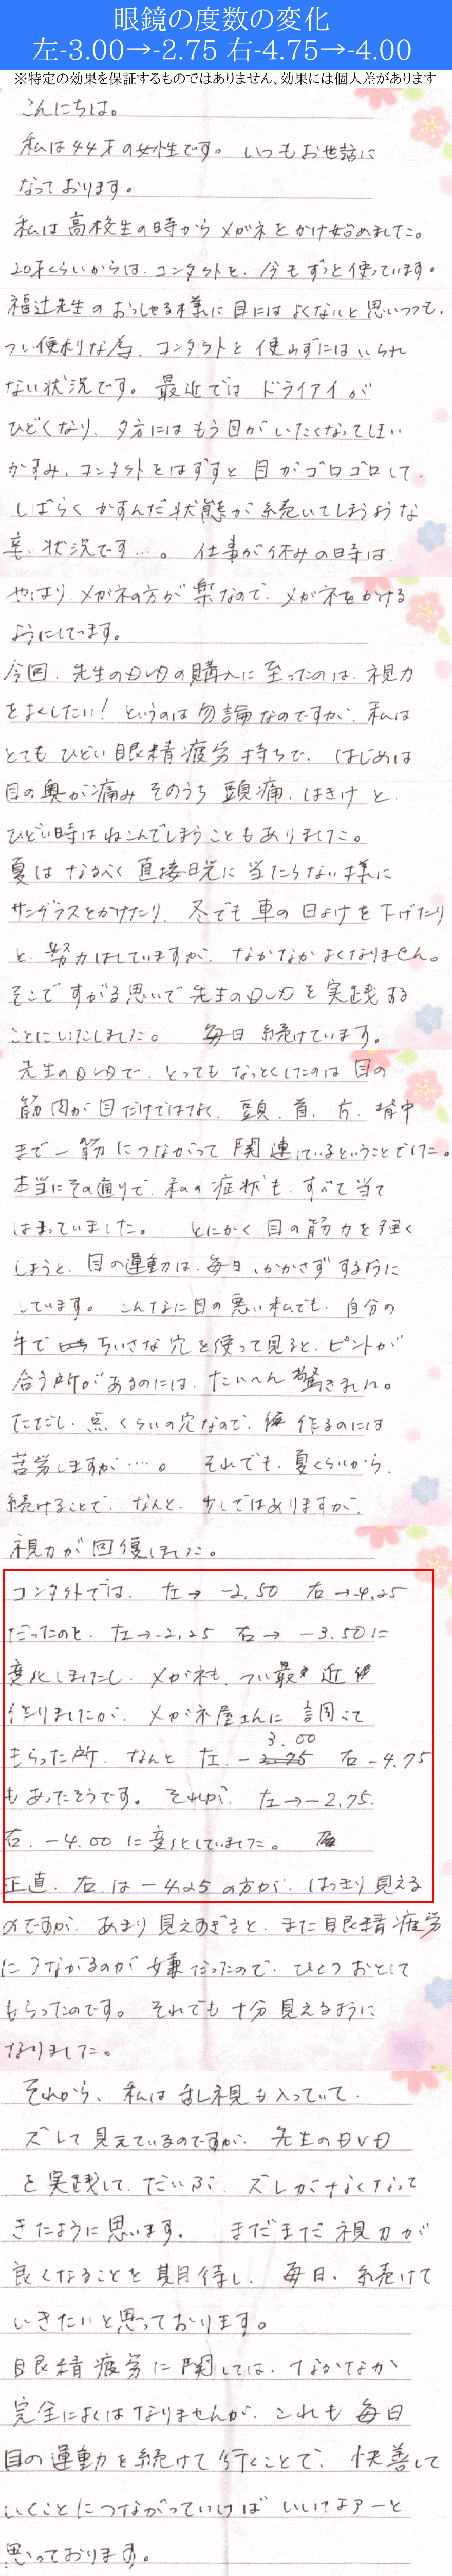 眼鏡の度数の変化
左-3.00→-2.75 右-4.75→-4.00
※特定の効果を保証するものではありません、効果には個人差があります
こんにちは。
私は44才の女性です。 いつもお世話に
なっております。
私は高校生の時からメガネをかけ始めました。
20才くらいからは、コンタクトを、今もずっと使っています。
福辻先生のおっしゃる様に目にはよくないと思いつつも、
つい便利な為、コンタクトを使わずにはいられ
ない状況です。 最近では ドライアイが
ひどくなり、夕方にはもう目がいたくなってしまい
かすみ、コンタクトをはずすと目がゴロゴロして、
しばらくかすんだ状態が続いてしまうような
悪い状況です…。 仕事が休みの時は、
やはり、メガネの方が楽なので、メガネをかける
ようにしてます。
今回、先生のDVDの購入に至ったのは、視力
をよくしたい！というのは勿論なのですが、私は
とてもひどい眼精疲労持ちで、はじめは
目の奥が痛みそのうち頭痛、はきけと、
ひどい時はねこんでしまうこともありました。
夏はなるべく直接日光に当たらない様に
サングラスをかけたり、冬でも車の日よけを下げたり
と、努力はしていますが、なかなかよくなりません。
そこですがる思いで先生のDVDを実践する
ことにいたしました。 毎日続けています。
先生のDVDで、とってもなっとくしたのは目の
筋肉が目だけではなく、頭、首、肩、背中
まで一筋につながって関連しているということでした。
本当にその通りで、私の症状も、すべて当て
はまっていました。 とにかく目の筋力を強く
しようと、目の運動は、毎日、かかさずするように
しています。 こんなに目の悪い私でも、自分の
手でちいさな穴を使って見ると、ピントが
合う所があるのには、たいへん驚きました。
ただし、点くらいの穴なので、作るのには
苦労しますが…。 それでも、夏くらいから、
続けることで、なんと、少しではありますが、
視力が回復しました。
コンタクトでは、左→ -2.50 右→-4.25
だったのを、左→-2.25 右→ -3.50に
変化しましたし、メガネも、つい最近
作りましたが、メガネ屋さんに調べて
もらった所、なんと左、-3.00 右-4.75
もあったそうです。それが、左→-2.75、
右、-4.00に変化していました。
正直、右は-4.25の方が、はっきり見える
のですが、あまり見えすぎると、また眼精疲労
につながるのが嫌だったので、ひとつおとして
もらったのです。それでも十分見えるように
なりました。
それから、私は乱視も入っていて、
ズレて見えているのですが、先生のDVD
を実践して、だいぶ、ズレがなくなって
きたように思います。 まだまだ視力が
良くなることを期待し、毎日、続けて
いきたいと思っております。
眼精疲労に関しては、なかなか
完全によくはなりませんが、これも毎日
目の運動を続けて行くことで、快善して
いくことにつながっていけばいいなァーと
思っております。